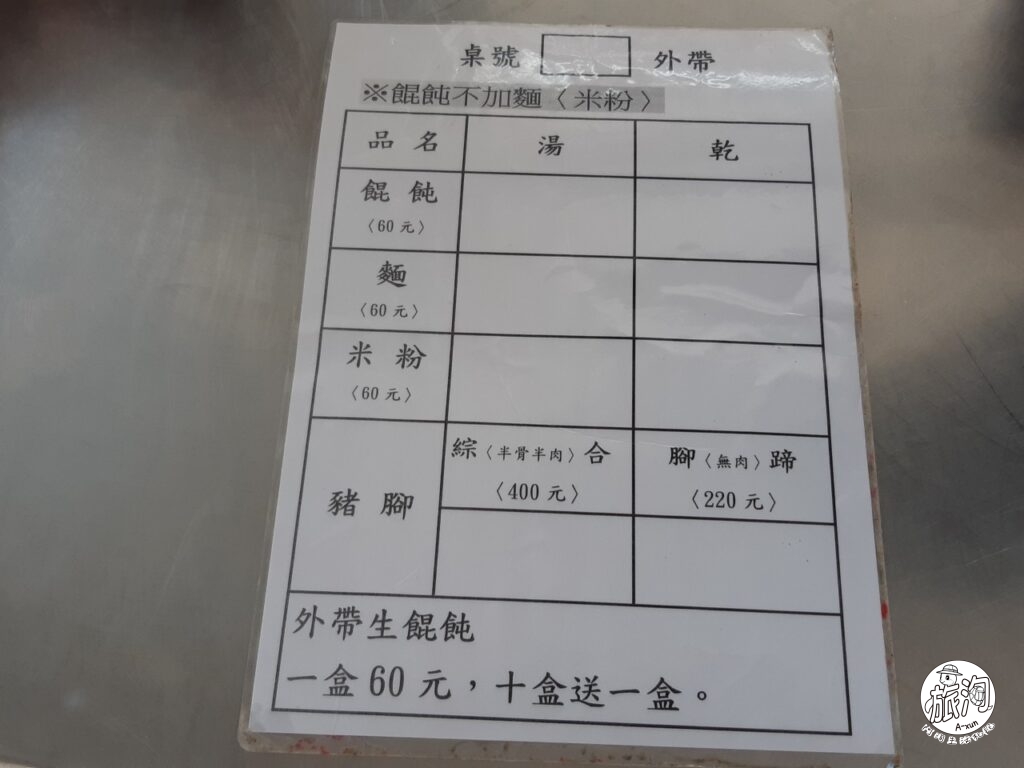 桌號 外帶
※餛飩不加麵〈米粉〉
品名 湯 乾
餛飩
〈60元〉
麵
〈60元〉
米粉
〈60元〉
豬腳
綜〈半骨半肉〉合
〈400元〉
腳〈無肉〉蹄
〈220元〉
外帶生餛飩
一盒60元，十盒送一盒。
旅淘
A-xun